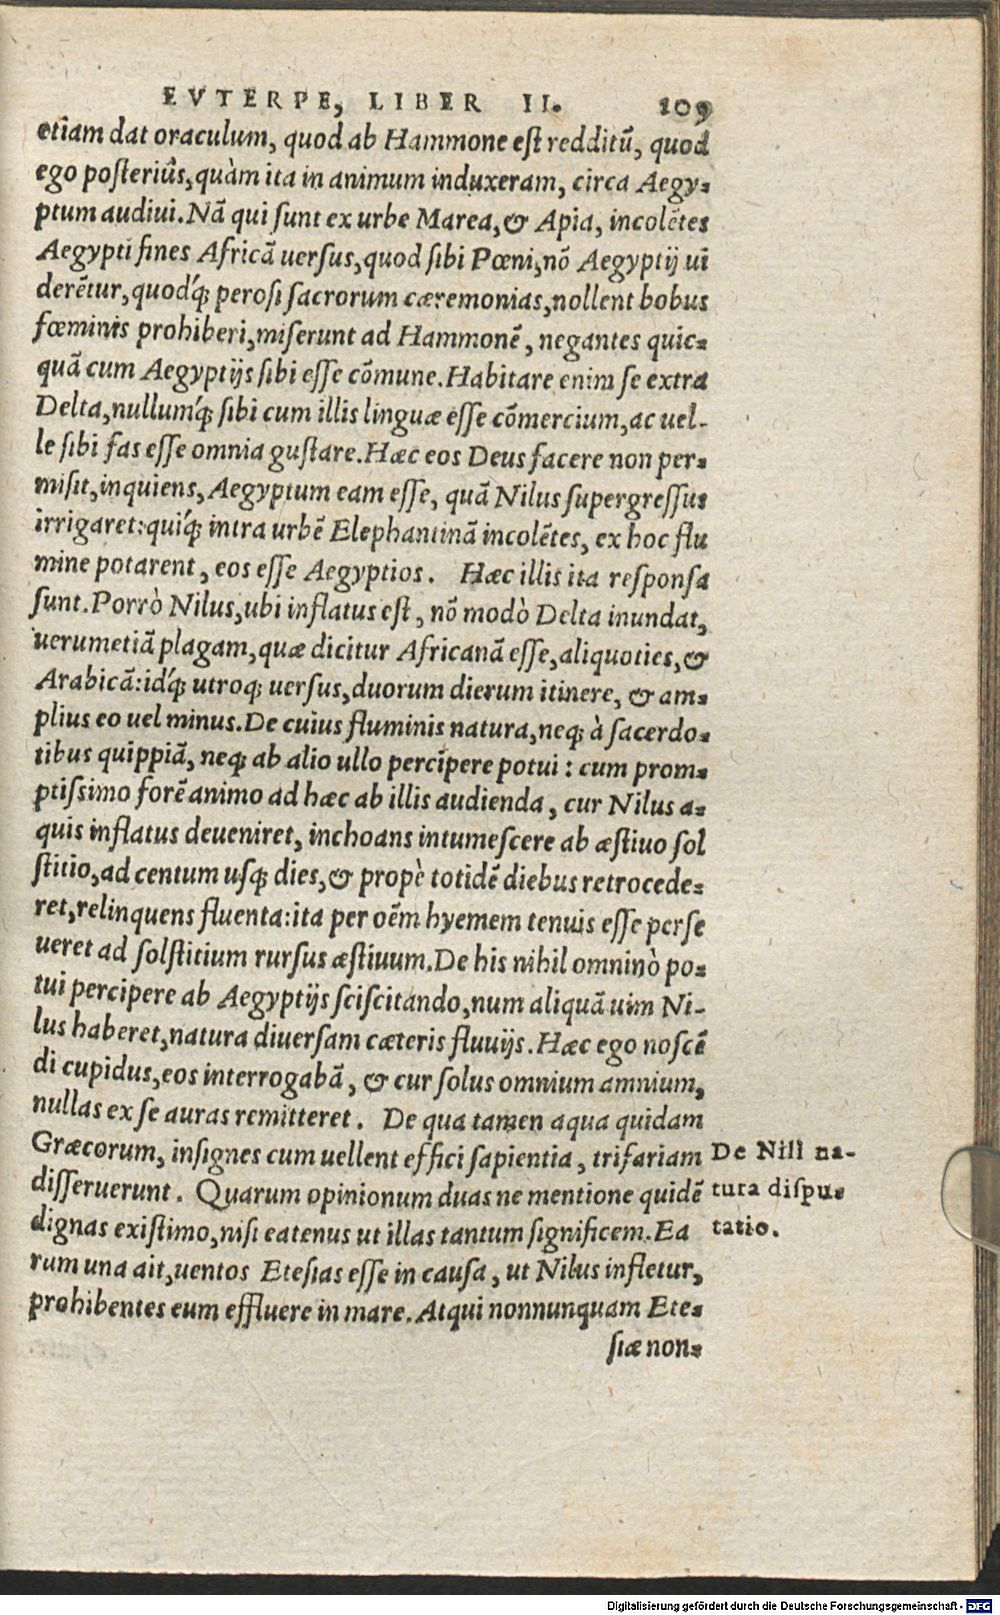 EVTERPE, LIBER II. 109
etiam dat oraculum, quod ab Hammone est redditũ, quod
ego posteriùs, quàm ita in animum induxeram, circa Aegy-
ptum audiui. Nã qui sunt ex urbe Marea, & Apia, incolẽtes
Aegypti fines Africã uersus, quod sibi Pœni, nõ Aegyptij ui
derẽtur, quodq́; perosi sacrorum cæremonias, nollent bobus
fœminis prohiberi, miserunt ad Hammonẽ, negantes quic-
quã cum Aegyptijs sibi esse cõmune. Habitare enim se extra
Delta, nullumq́; sibi cum illis linguæ esse cõmercium, ac uel-
le sibi fas esse omnia gustare. Hæc eos Deus facere non per-
misit, inquiens, Aegyptum eam esse, quã Nilus supergressus
irrigaret: quiq́; intra urbẽ Elephantinã incolẽtes, ex hoc flu
mine potarent, eos esse Aegyptios. Hæc illis ita responsa
sunt. Porrò Nilus, ubi inflatus est, nõ modò Delta inundat,
uerumetiã plagam, quæ dicitur Africanã esse, aliquoties, &
Arabicã: idq́; utroq; uersus, duorum dierum itinere, & am-
plius eo uel minus. De cuius fluminis natura, neq; à sacerdo-
tibus quippiã, neq; ab alio ullo percipere potui: cum prom-
ptissimo forẽ animo ad hæc ab illis audienda, cur Nilus a-
quis inflatus deueniret, inchoans intumescere ab æstiuo sol
stitio, ad centum usq; dies, & propè totidẽ diebus retrocede-
ret, relinquens fluenta: ita per oẽm hyemem tenuis esse perse
ueret ad solstitium rursus æstiuum. De his nihil omninò po-
tui percipere ab Aegyptijs sciscitando, num aliquã uim Ni-
lus haberet, natura diuersam cæteris fluuijs. Hæc ego noscẽ
di cupidus, eos interrogabã, & cur solus omnium amnium,
nullas ex se auras remitteret. De qua tamen aqua quidam
Græcorum, insignes cum uellent effici sapientia, trifariam
disseruerunt. Quarum opinionum duas ne mentione quidẽ
dignas existimo, nisi eatenus ut illas tantum significem. Ea
rum una ait, uentos Etesias esse in causa, ut Nilus infletur,
prohibentes eum effluere in mare. Atqui nonnunquam Ete-
siæ non-
De Nili na-
tura dispu-
tatio.
Digitalisierung gefördert durch die Deutsche Forschungsgemeinschaft - DFG